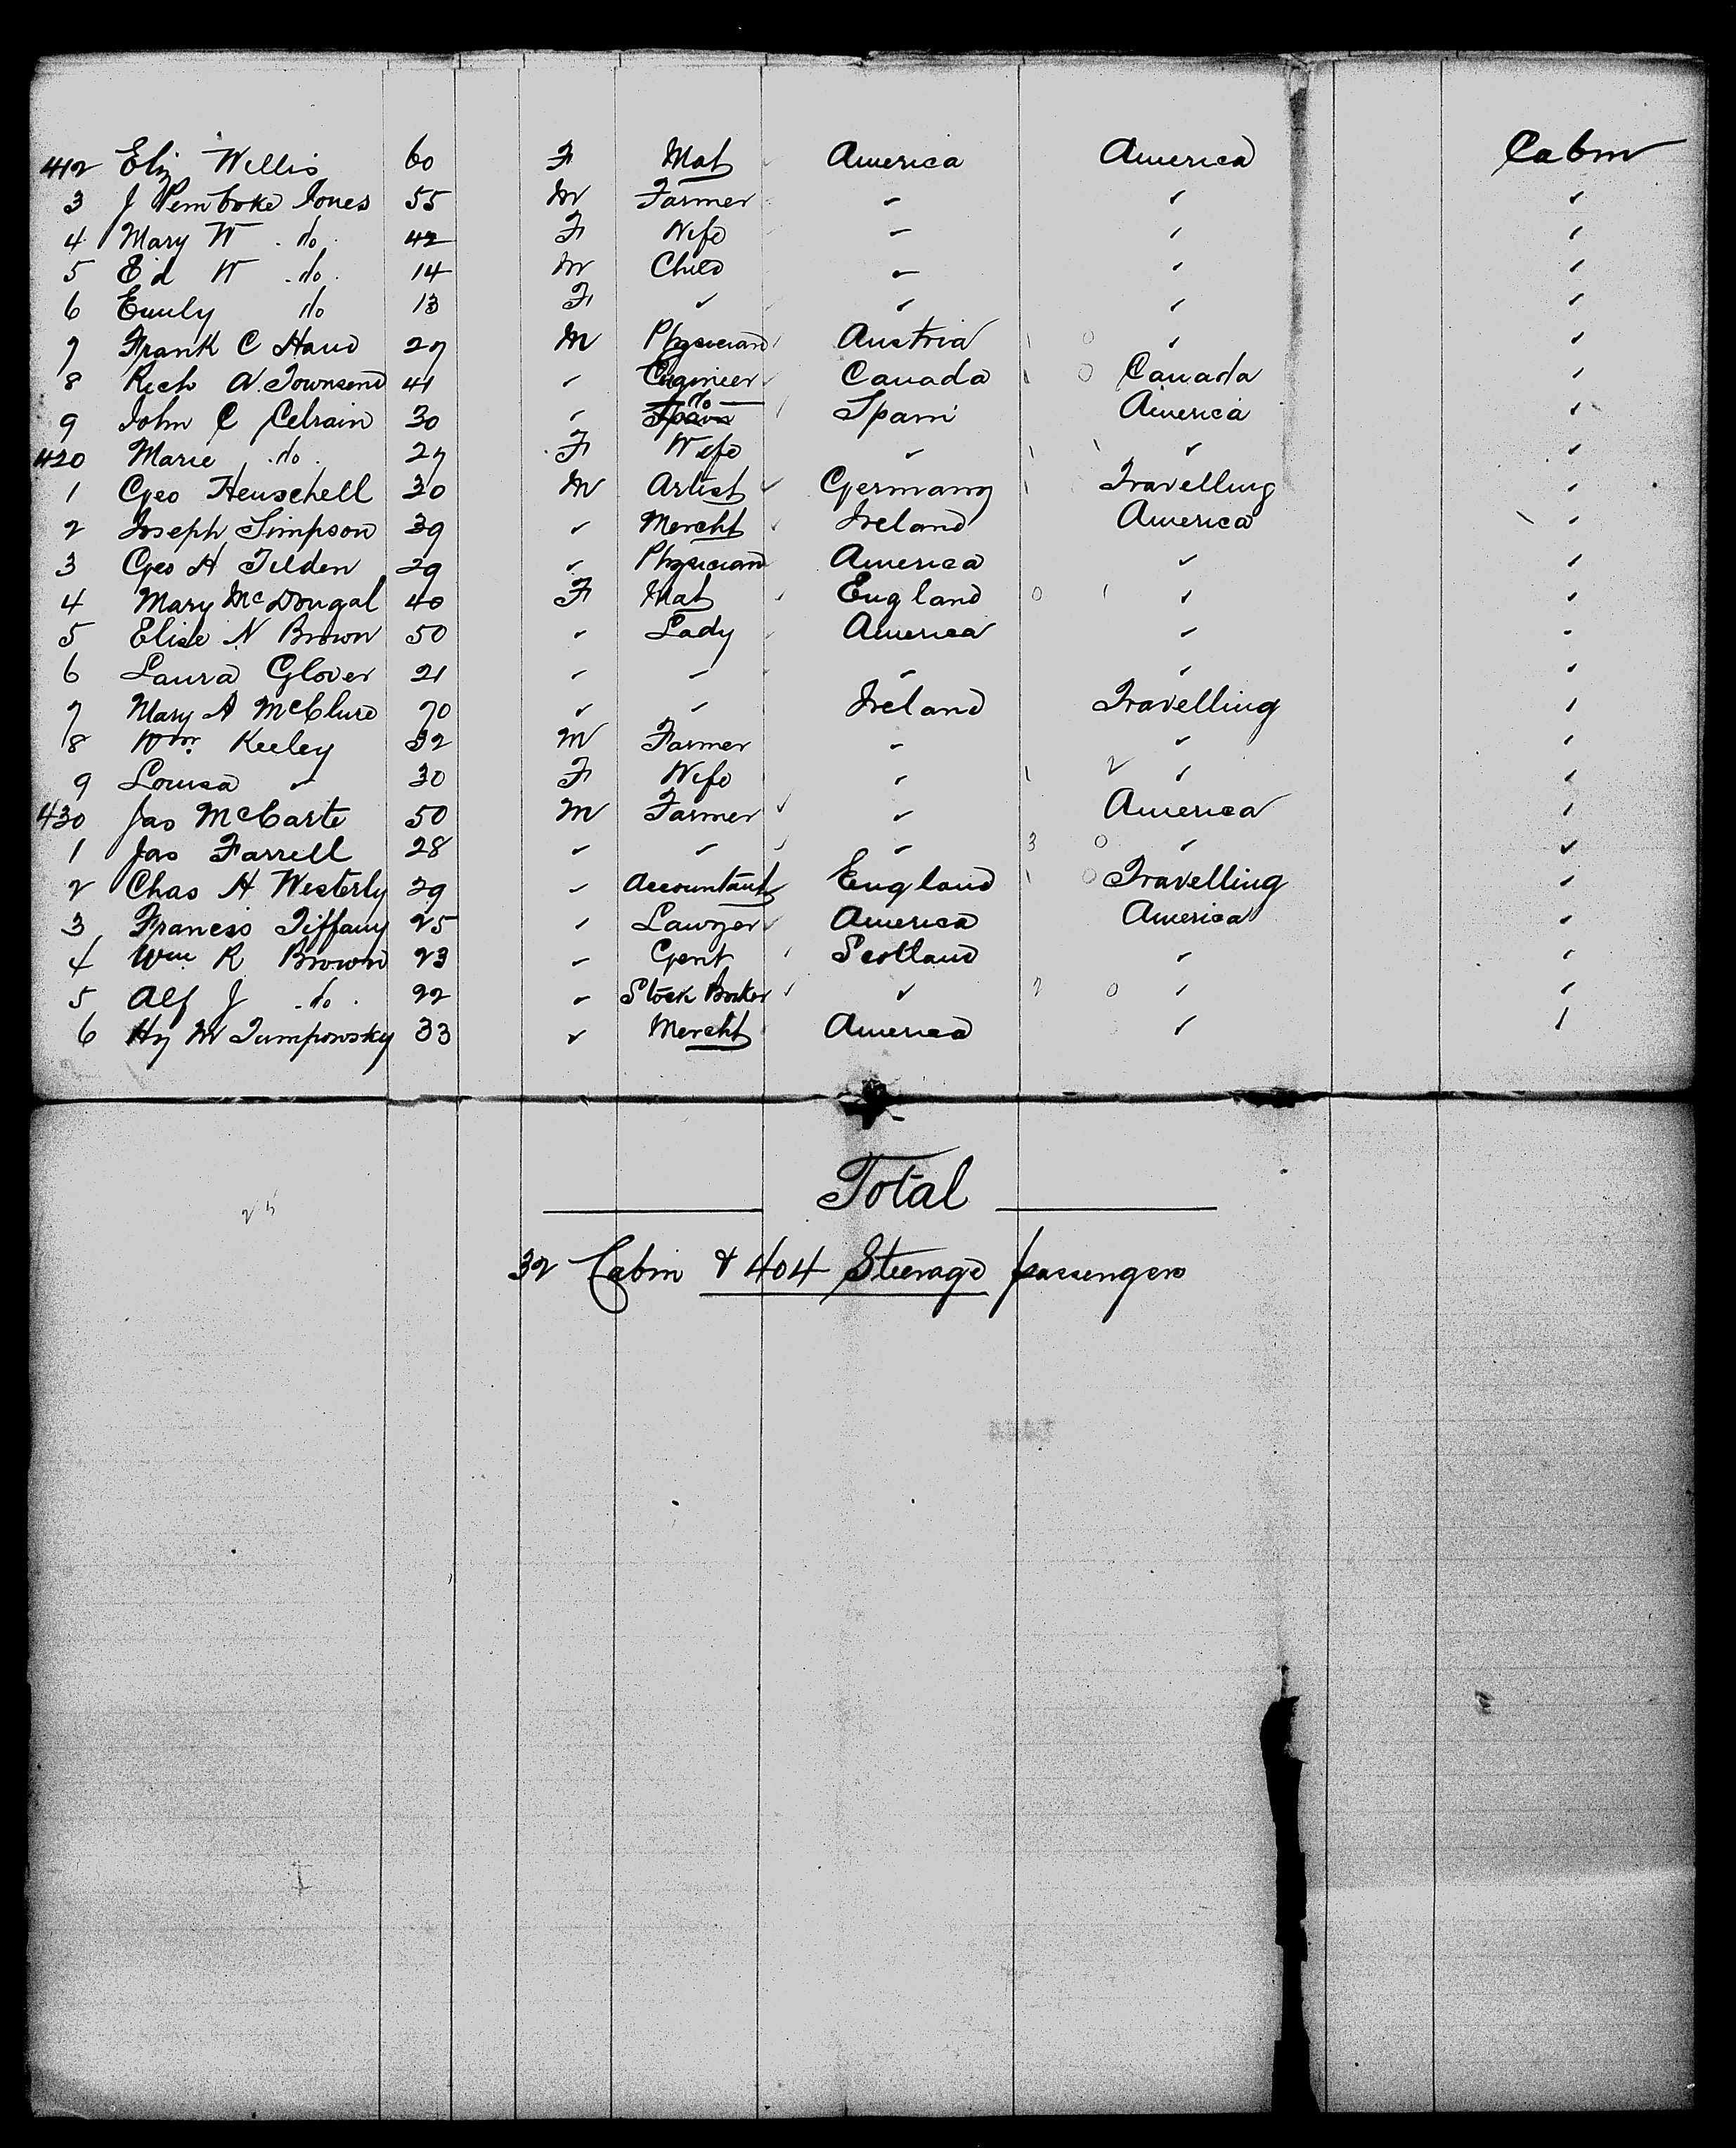 412 Eliz Willis 60 F Mat America America Cabin
3 J Pembroke Jones 55 M Farmer " " "
4 Mary W do 42 F Wife " " "
5 Ed W do 14 M Child " " "
6 Emily do 13 F " " " "
7 Frank C Hand 27 M Physician Austria " "
8 Rich A. Townsend 41 " Engineer Canada Canada "
9 John C Celrain 30 " do Spain America "
420 Marie do 27 F Wife " " "
1 Geo Henschell 30 M Artist Germany Travelling "
2 Joseph Simpson 39 " Mercht Ireland America "
3 Geo H Tilden 29 " Physician America " "
4 Mary McDougal 40 F Mat England " "
5 Elise N Brown 50 " Lady America " "
6 Laura Glover 21 " " " " "
7 Mary A McClure 70 " " Ireland Travelling "
8 Wm Keeley 32 M Farmer " " "
9 Louisa " 30 F Wife " " "
430 Jas McCarte 50 M Farmer " America "
1 Jas Farrell 28 " " " " "
2 Chas H Westerly 29 " Accountant England Travelling "
3 Francis Tiffany 25 " Lawyer America America "
4 Wm R Brown 23 " Gent Scotland " "
5 Alf J do 22 " Stock Broker " " "
6 Hy M Tumpowsky 33 " Mercht America " "
Total
32 Cabin & 404 Steerage passengers